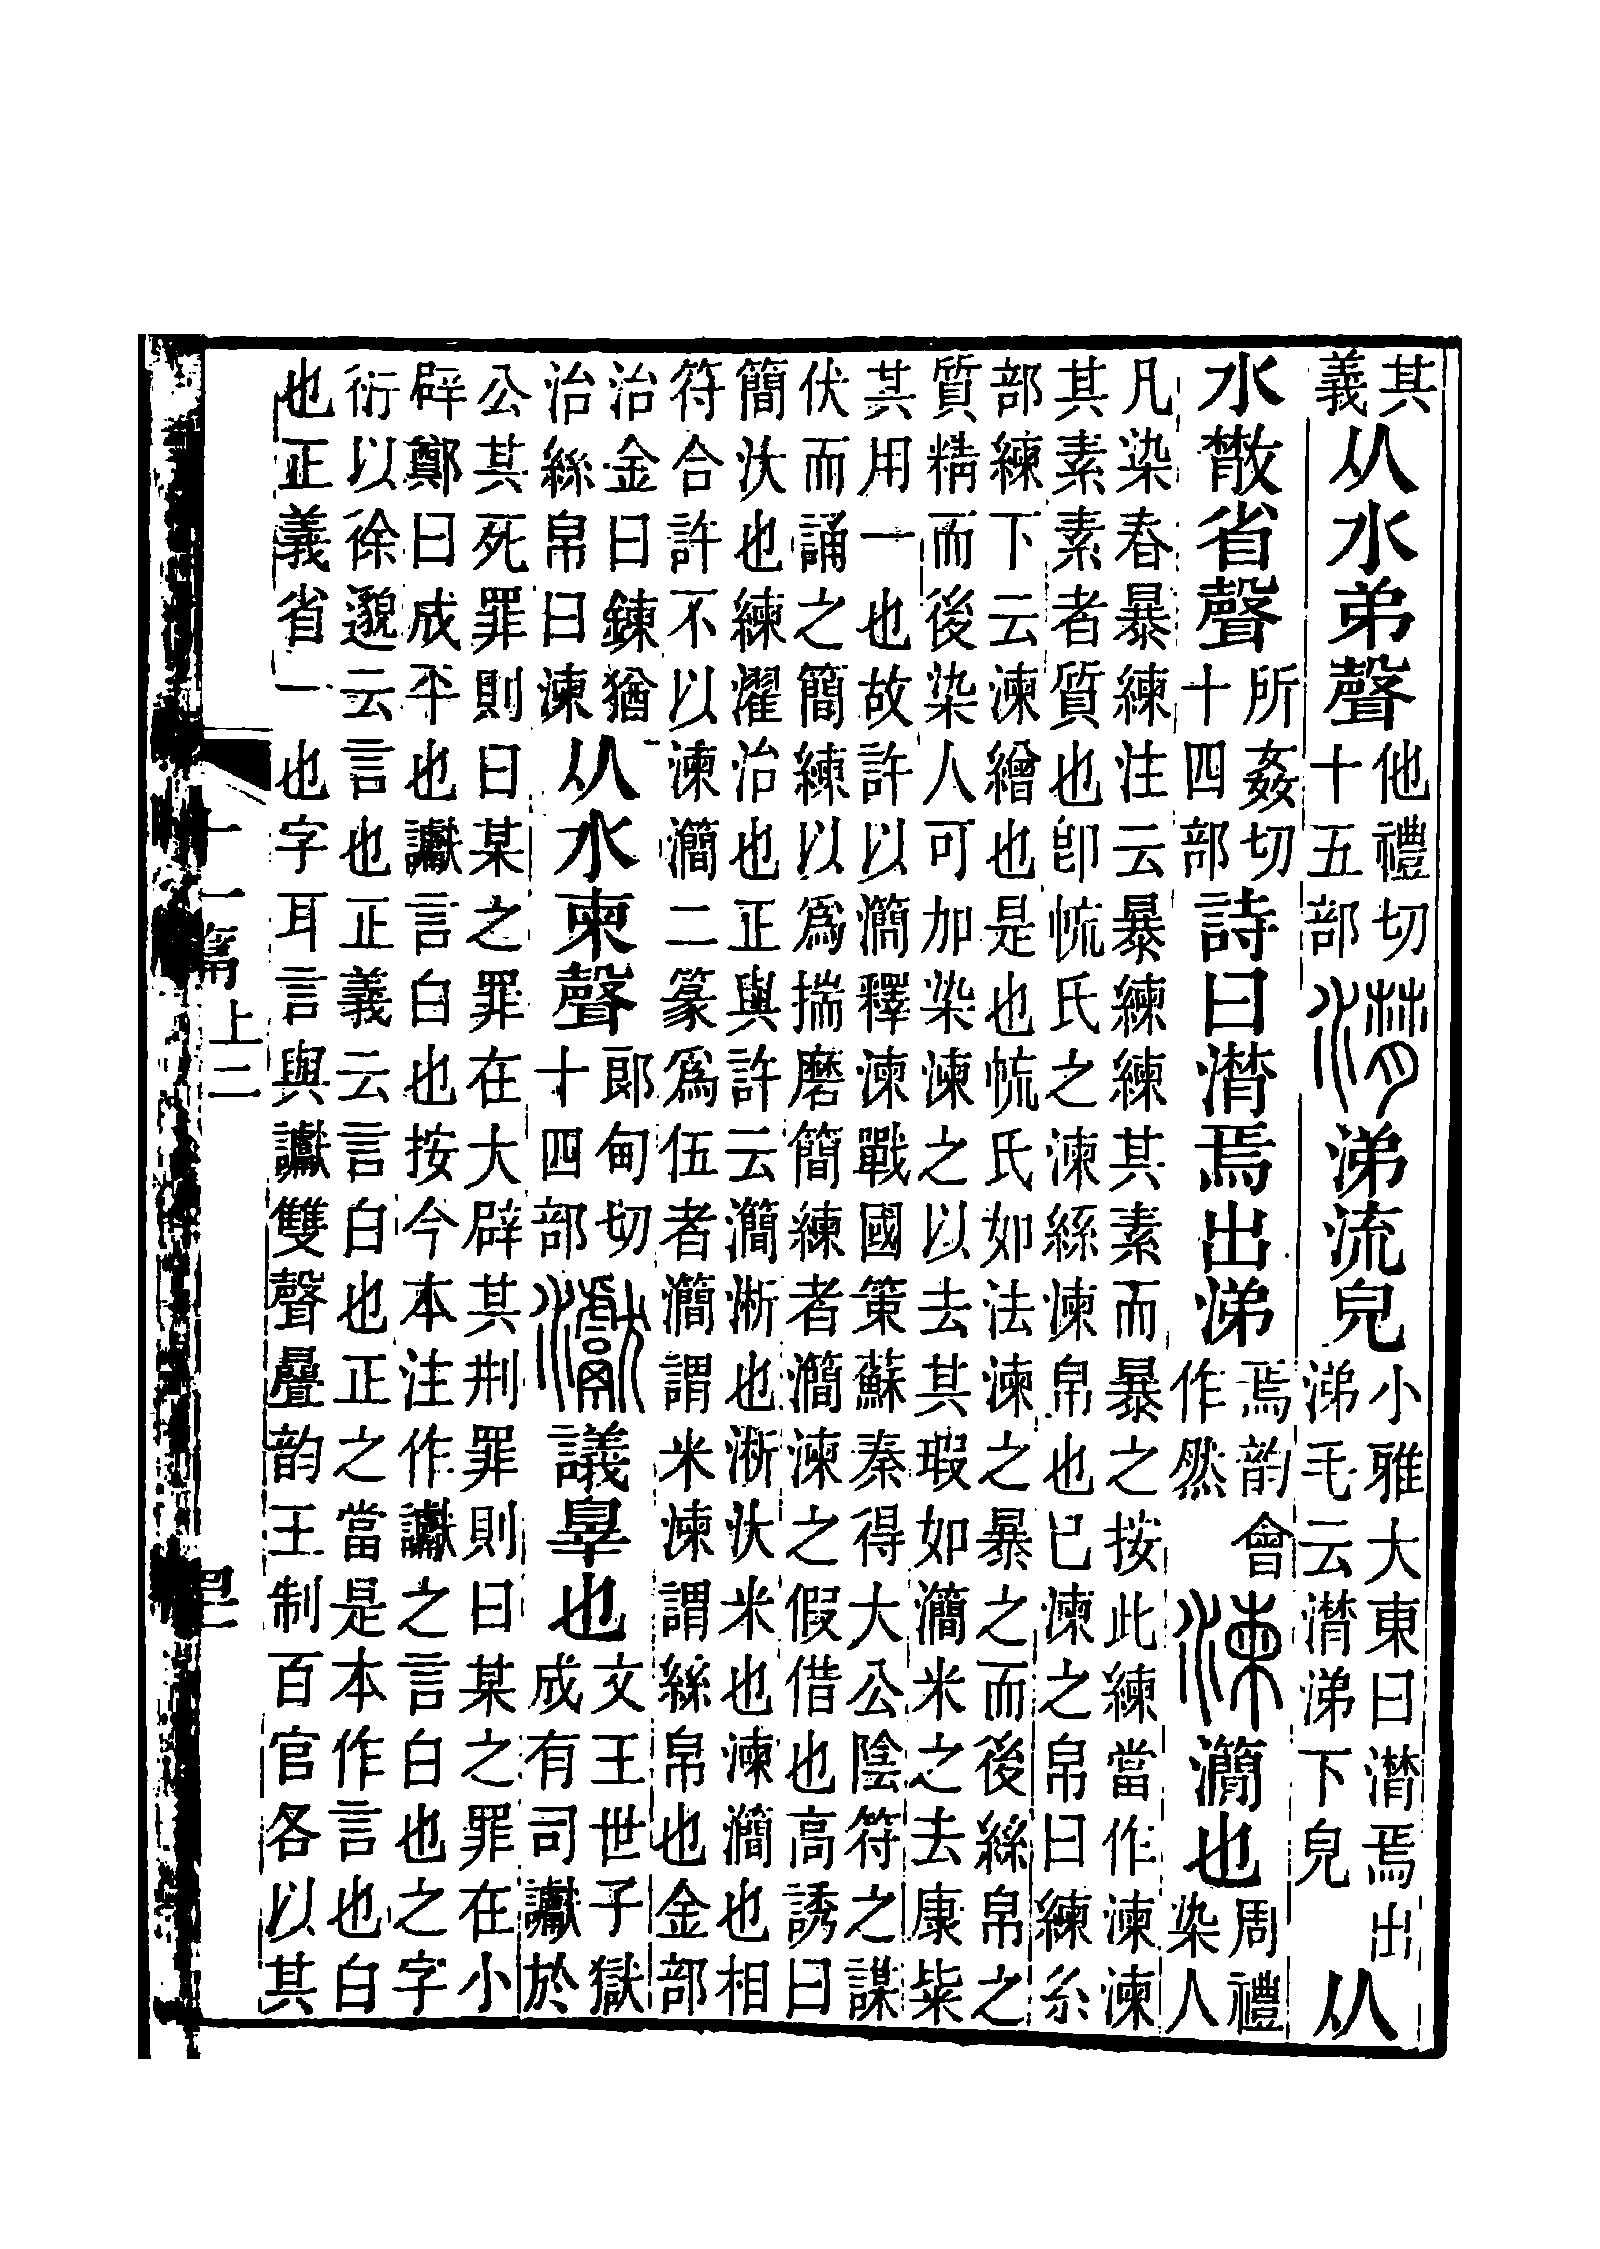 其義从水弟聲他禮切十五部潸涕流皃小雅大東曰潸焉出涕毛云潸涕下皃从
水𢿱省聲所姦切十四部詩曰潸焉出涕焉韵會作然湅㶕也周禮染人
凡染春暴練注云暴練練其素而暴之按此練當作湅湅
其素素者質也卽㡛氏之湅絲湅帛也已湅之帛曰練糸
部練下云湅繒也是也㡛氏如法湅之暴之而後絲帛之
質精而後染人可加染湅之以去其瑕如㶕米之去康粊
其用一也故許以㶕釋湅戰國策蘇秦得大公陰符之謀
伏而誦之簡練以爲揣磨簡練者㶕湅之假借也高誘曰
簡汏也練濯治也正與許云㶕淅也淅汏米也湅㶕也相
符合許不以湅㶕二篆爲伍者㶕謂米湅謂絲帛也金部
治金曰鍊猶治絲帛曰湅从水柬聲郞甸切十四部議辠也文王世子獄成有司讞於
公其死罪則曰某之罪在大辟其刑罪則曰某之罪在小
辟鄭曰成平也讞言白也按今本注作讞之言白也之字
衍以徐邈云言也正義云言白也正之當是本作言也白
也正義省一也字耳言與讞雙聲曡韵王制百官各以其
十一篇上二